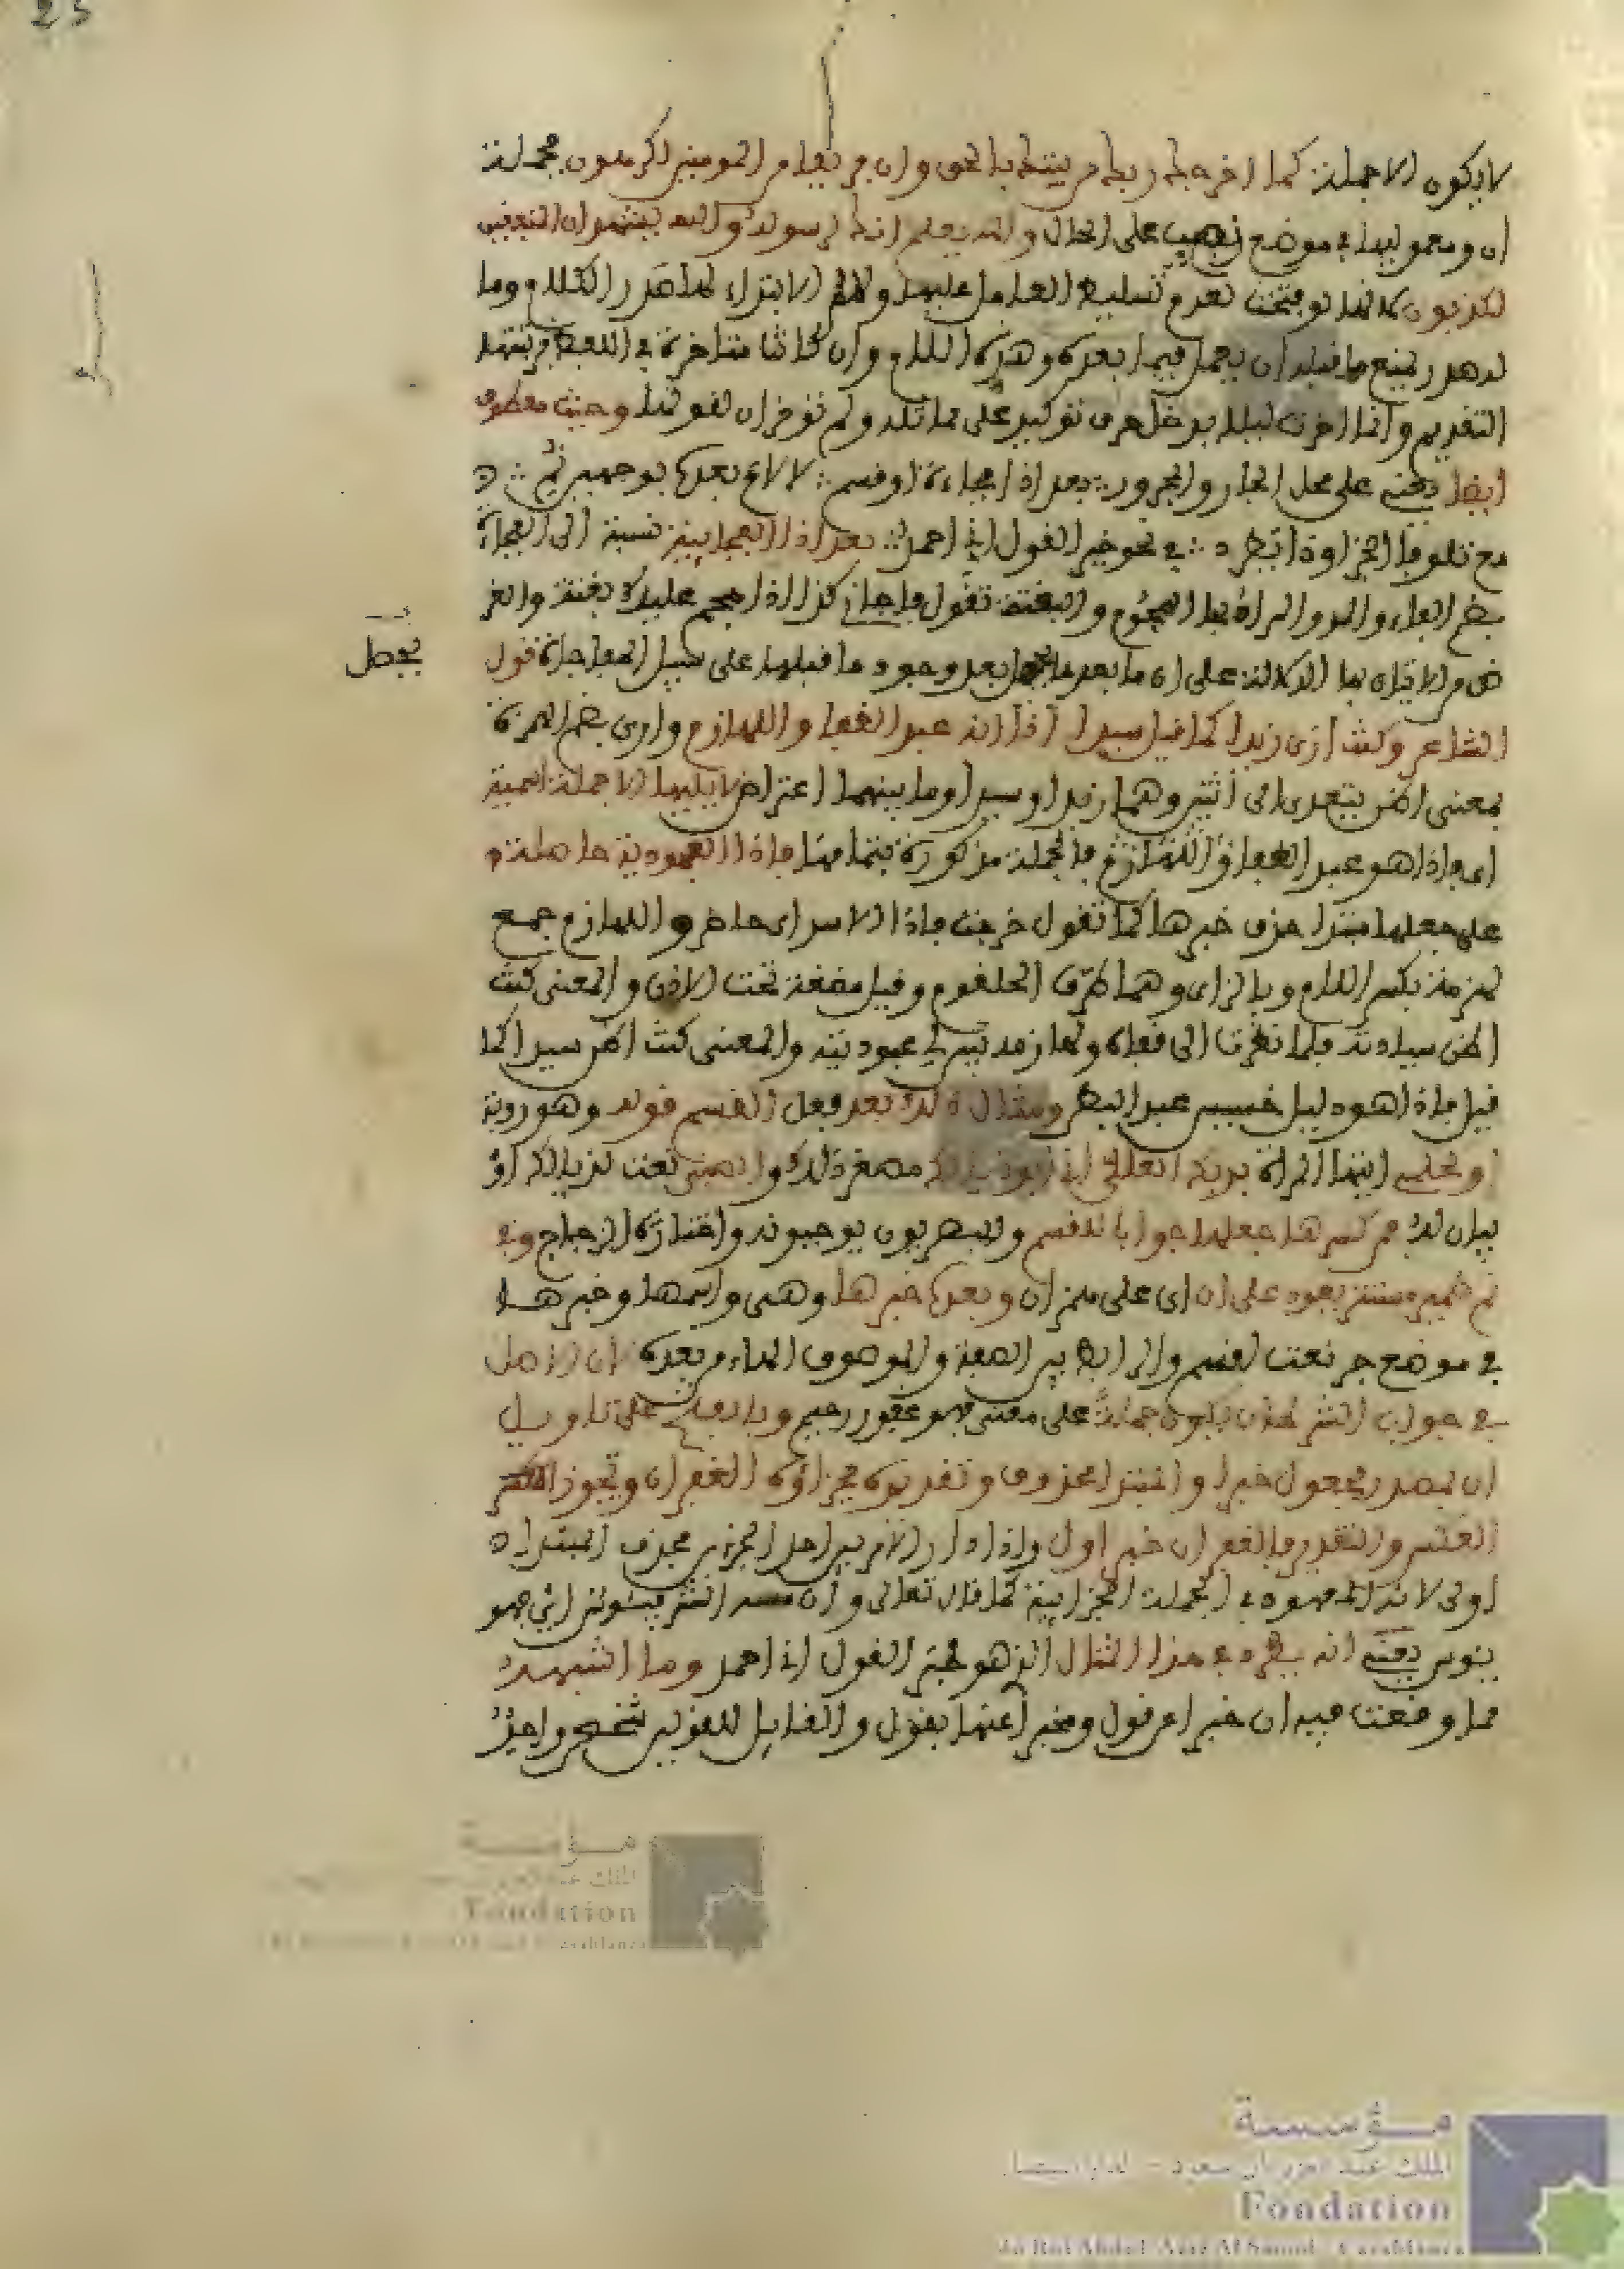 25
لا يكون الا جملة كما اخرجك ربك من بيتك بالحق وان فريقا من المومنين لكرهون فجملة
ان ومعموليها في موضع نصب على الحال والله يعلم انك لرسوله والله يشهد ان المنفقين
لكذبون لانها لو فتحت لعدم تسليط العامل عليها ولام الابتداء لها صدر الكلام وما
له صدر يمنع ما قبله ان يعمل فيما بعده وهذه اللام وان كانت متاخرة في اللفظ فرتبتها
التقديم وانما اخرت ليلا يدخل حرف توكيد على مثله ولم توخر ان لقوتها وحيث معطوف
ايضا على محل الجار والمجرور بعد اذا فجاءة او قسم لا لام بعده بوجهين نمي
مع تلو فا الجزا وذا يطرد في نحو خير القول اني احمد بعد اذا الفجايية نسبة الى الفجاءة
بضم الفاء والمد والمراد بها الهجوم والبغتة تقول فاجاني كذا اذا هجم عليك بغتة والغر
ض من الاتيان بها الدلالة على ان ما بعدها يحصل بعد وجود ما قبلها على سبيل المفاجاة قول
يحصل
الشاعر وكنت ارى زيدا كما قيل سيدا اذا انه عبد القفا واللهازم وارى بضم الهمزة
بمعنى اظن يتعدى الى اثنين وهما زيدا وسيدا وما بينهما اعتراض لا يليها الا جملة اسمية
اي فاذا هو عبد القفا واللهازم فالجملة مذكورة بتمامها فاذا العبودية حاصلة
على جعلها مبتدا حذف خبرها كما تقول خرجت فاذا الاسد اي حاضر واللهازم جمع
لهزمة بكسر اللام وبالزاي وهما طرف الحلقوم وقيل مضغة تحت الاذن والمعنى كنت
اظن سيادته فلما نظرت الى قفاه ولهازمه تبين لي عبوديته والمعنى كنت اظن سيدا كما
قيل فاذا هو ذليل خسيس عبد البطن ومثال ذلك بعد فعل القسم قوله وهو روبة
او تحلفي ابنها المراة بربك العلي اني ابو ذيالك مصغر ذلك والصبي نعت لذيالك او
بيان له فمن كسرها جعلها جوابا للقسم والبصريون يوجبونه واختاره الزجاج وفي
نمي ضمير مستتر يعود على ان اي على همز ان وبعده خبرها وهي واسمها وخبرها
في موضع جر نعت لقسم والرابط بين الصفة والموصوف الهاء من بعده لان الاصل
في جواب الشرط ان يكون جملة على معنى فهو غفور رحيم وبالفتح على تاويل
ان بمصدر مجعول خبرا والمبتدا محذوف وتقديره فجزاؤه الغفران ويجوز
العكس والتقدير فالغفران خبر اول واذا دار الامر بين احد الجزءين فحذف المبتدا
اولى لانه المعهود في الجملة الجزايية كما قال تعالى وان مسه الشر فيئوس اي فهو
يئوس يعني انه يطرد في هذا المثال الذي هو خير القول اني احمد وما اشبهه
مما وقعت فيه ان خبرا عن قول ومخبرا عنها بقول والقايل للقولين شخص واحد
مؤسسة
الملك عبد العزيز آل سعود - الدار البيضاء
Fondation
du Roi Abdul-Aziz Al Saoud - Casablanca